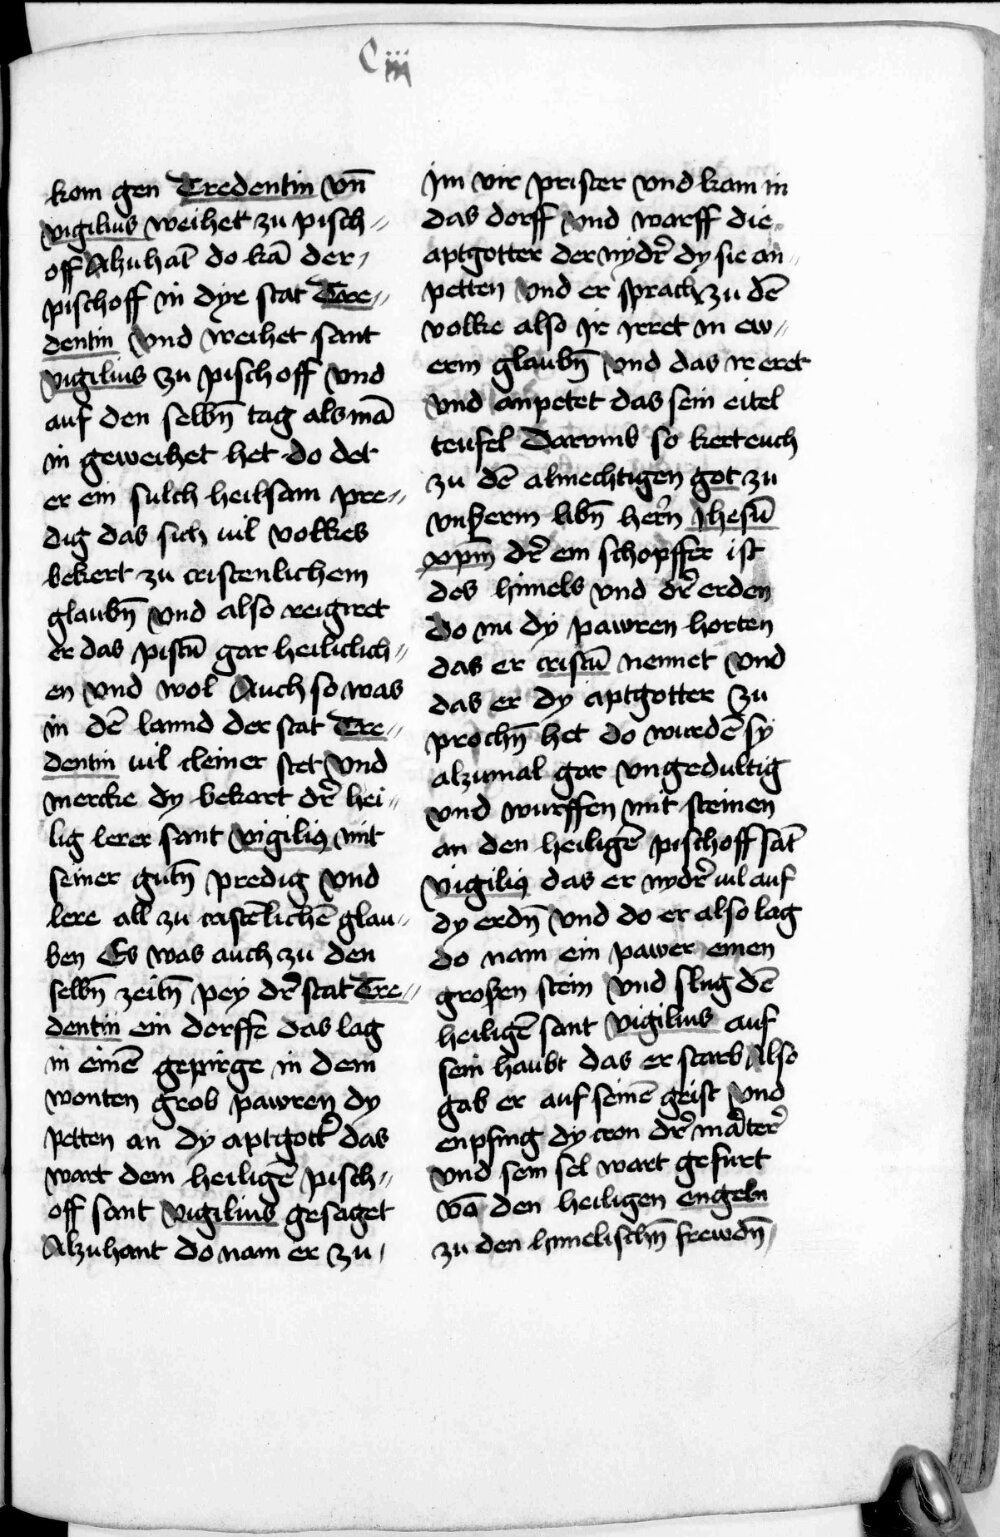 Ciii
kom gen Tredentin vn̄
vigilius weihet zu pisch⸗
off Alzuhāt do kā der
pischoff in dyr stat Tre⸗
dentin Vnd weihet sant
vigilius zu pischoff Vnd
auf den selbn̄ tag als mā
in geweihet het do det
er ein sulch heilsam pre⸗
dig das sich uil volkes
bekert zu cristenlichem
glaubn̄ Vnd also reigiret
er das pistū gar heiliclich⸗
en Vnd wol Auch so was
in dē lannd der stat Tre⸗
dentin uil cleiner stet Vnd
mercke dy bekart dr̄ hei⸗
lig lerer sant vigiliꝰ mit
seiner gutn̄ predig Vnd
lere all zu cristēlichē glau⸗
ben Es was auch zu den
selbn̄ zeitn̄ pey dr̄ stat Tre⸗
dentin ein dorffe das lag
in einē gepirge in dem
wonten grob pawren dy
petten an dy aptgott̄ das
wart dem heiligē pisch⸗
off sant Vigilius gesaget
Alzuhant do nam er zu
im vir prister vnd kam in
das dorff Vnd warff die
aptgotter der nydr̄ dy sie an⸗
petten Vnd er sprach zu dē
volke also Ir irret in ew⸗
erm glaubn̄ Vnd das ir eret
Vnd anpetet das sein eitel
teufel Darvmb so kert euch
zu dē almechtigen got zu
vnßerm libn̄ hern̄ Jhesū
xpm̄ dr̄ ein schopffer ist
des himels vnd dr̄ erden
Do nu dy pawren horten
das er cristū nennet Vnd
das er dy aptgotter zu
prochn̄ het do wurdē sy
alzumal gar vngedultig
vnd wurffen mit steinen
an den heiligē pischoff sāt
Vigiliꝰ das er nydr̄ uil auf
dy erdn̄ Vnd do er also lag
do nam ein pawer einen
großen stein Vnd slug dē
heiligē sant Vigilius auf
sein haubt das er starb Also
gab er auf seinē geist Vnd
enpfing dy cron dr̄ mārter̄
Vnd sein sel wart gefurt
vō den heiligen engeln
zu den himelischn̄ frewdn̄